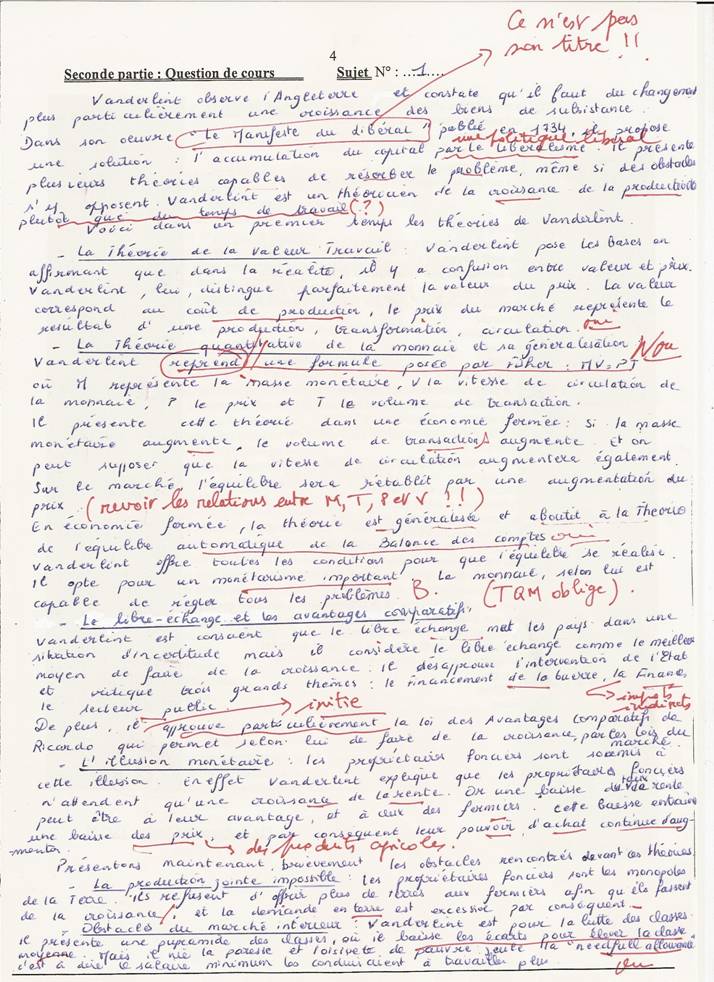 Ce n'est pas
son titre !!
4
Seconde partie : Question de cours Sujet N° : ...1...
Vanderlint observe l'Angleterre et constate qu'il faut du changement
plus particulièrement une croissance des biens de subsistance.
Dans son oeuvre "Le Manifeste du libéral" publié en 1734, il propose
une politique libéral
une solution : l'accumulation du capital par le libéralisme. Il présente
plusieurs théories capables de résorber le problème, même si des obstacles
s'y opposent. Vanderlint est un théoricien de la croissance de la productivité
plutôt que du temps de travail (?)
Voici dans un premier temps les théories de Vanderlint.
- La Théorie de la Valeur Travail : Vanderlint pose les bases en
affirmant que dans la réalité, il y a confusion entre valeur et prix.
Vanderlint, lui, distingue parfaitement la valeur du prix. La valeur
correspond au coût de production, le prix du marché représente le
résultat d'une production, transformation, circulation. oui
- La Théorie quantitative de la monnaie et sa généralisation
Vanderlint reprend une formule posée par Fisher : MV = PT Non
où M représente la masse monétaire, V la vitesse de circulation de
la monnaie, P le prix et T le volume de transaction.
Il présente cette théorie dans une économie fermée : si la masse
monétaire augmente, le volume de transactions augmente. Et on
peut supposer que la vitesse de circulation augmentera également.
Sur le marché, l'équilibre sera rétablit par une augmentation du
prix. (revoir les relations entre M, T, P et V !!)
En économie fermée, la théorie est généralisée et aboutit à la Théorie
de l'équilibre automatique de la Balance des comptes oui
Vanderlint offre toutes les conditions pour que l'équilibre se réalise.
Il opte pour un monétarisme important. La monnaie, selon lui est
capable de régler tous les problèmes. B. (TQM oblige).
- Le libre-échange et les avantages comparatifs.
Vanderlint est conscient que le libre échange met les pays dans une
situation d'incertitude mais il considère le libre échange comme le meilleur
moyen de faire de la croissance. Il désapprouve l'intervention de l'Etat
et critique trois grands thèmes : le financement de la Guerre, la Finance,
le secteur public. initie impôts indirects
De plus, il approuve particulièrement la loi des Avantages comparatifs de
Ricardo qui permet selon lui de faire de la croissance, par les lois du
marché.
- L'illusion monétaire : les propriétaires fonciers sont soumis à
cette illusion. En effet Vanderlint explique que les propriétaires fonciers
n'attendent qu'une croissance de la rente. Or une baisse du taux de la rente
peut être à leur avantage, et à ceux des fermiers. Cette baisse entraîne
une baisse des prix, et par conséquent leur pouvoir d'achat continue d'aug-
-menter. des produits agricoles.
Présentons maintenant brièvement les obstacles rencontrés devant ces théories.
- La production jointe impossible : les propriétaires fonciers ont les monopoles
de la Terre. Ils refusent d'offrir plus de terres aux fermiers afin qu'ils fassent
de la croissance, et la demande en terre est excessive par conséquent.
- Obstacles du marché intérieur : Vanderlint est pour la lutte des classes.
Il présente une pyramide des classes, où il baisse les écarts pour élever la classe
moyenne. Mais il nie la paresse et l'oisiveté de pauvre. Seule la "needfull allowance"
c'est à dire le salaire minimum les conduiraient à travailler plus. Vu